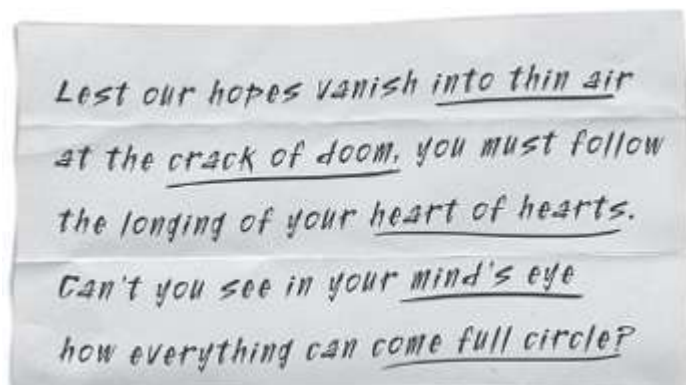 Lest our hopes vanish into thin air
at the crack of doom, you must follow
the longing of your heart of hearts.
Can't you see in your mind's eye
how everything can come full circle?